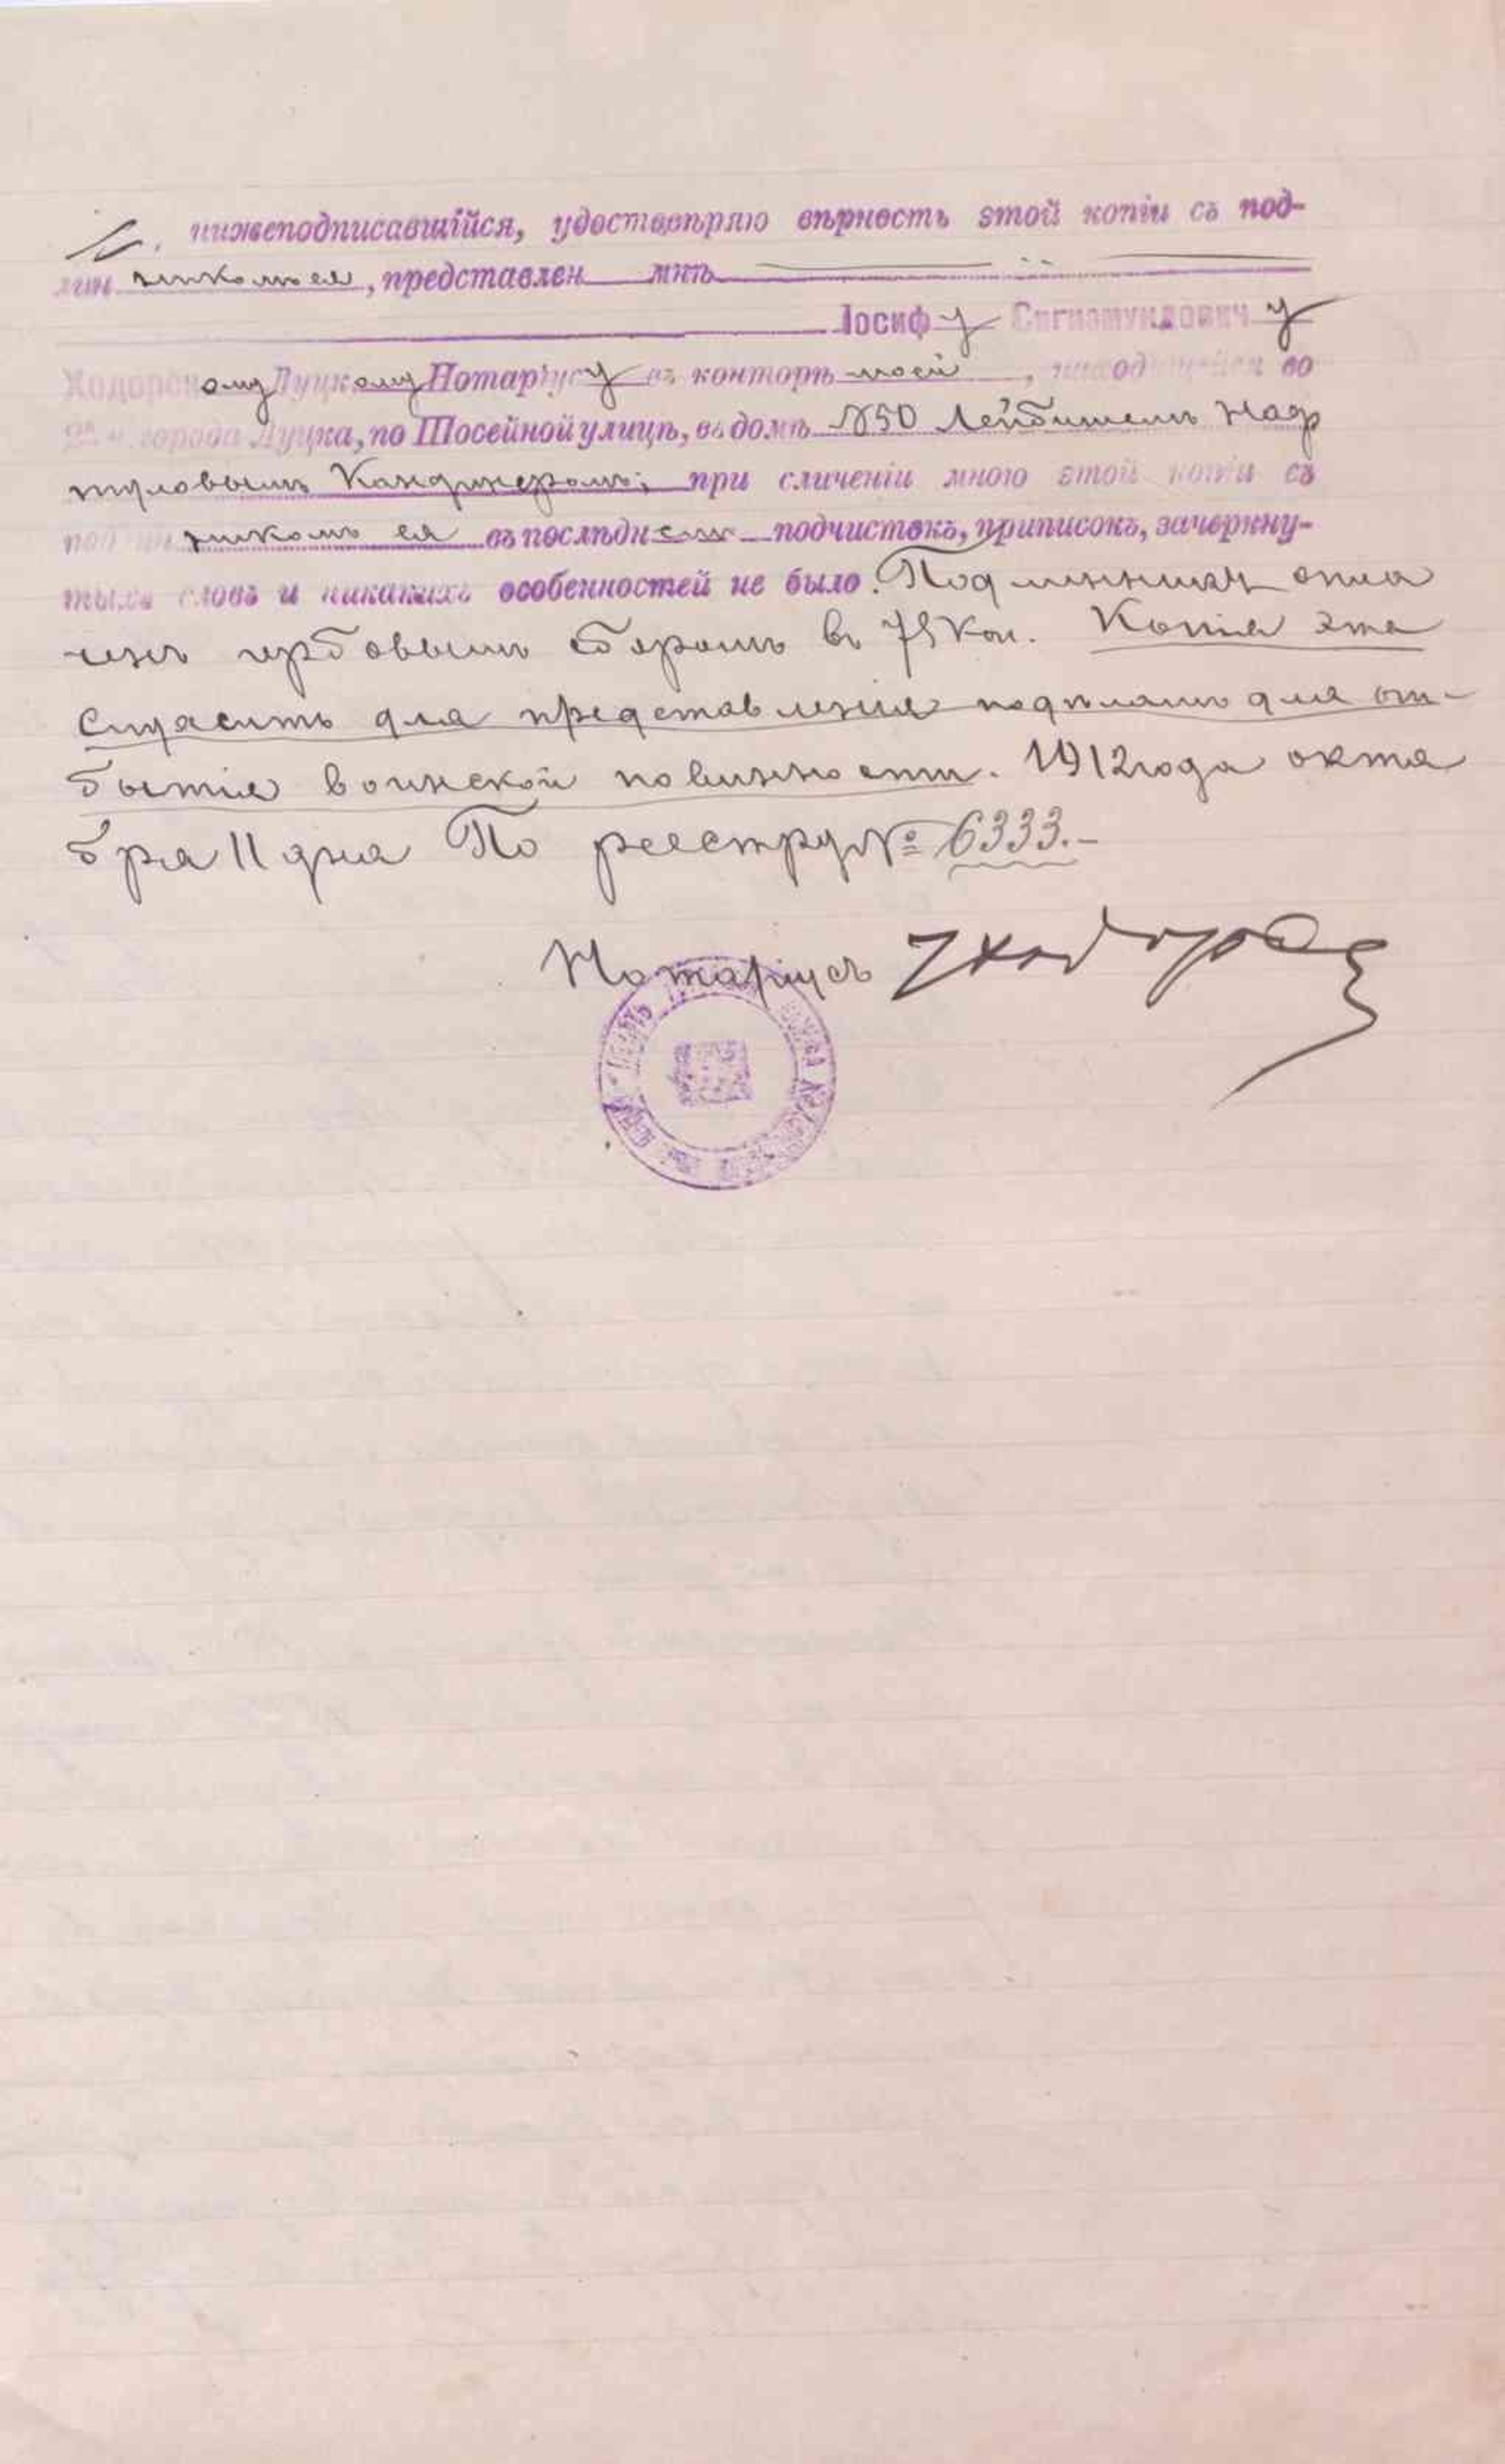 Я, нижеподписавшійся, удостовѣряю вѣрность этой копіи съ под-
лин никомъ ея, представлен мнѣ
Іосифу Сигизмундовичу
Ходоровскому Луцкому Нотаріусу въ конторѣ моей, находящейся во
2й ч. города Луцка, по Шосейной улицѣ, въ домѣ №50 Лейбишемъ Наф
туловымъ Кандинеромъ; при сличеніи мною этой копіи съ
подлинникомъ ея въ последнемъ подчистокъ, приписокъ, зачеркну-
тыхъ словъ и никакихъ особенностей не было. Подлинникъ опла
ченъ гербовымъ сборомъ въ 75 коп. Копія эта
служитъ для представленія подѣламъ для от-
бытія воинской повинности. 1912 года октя
бря 11 дня По реестру № 6333.-
Нотаріусъ